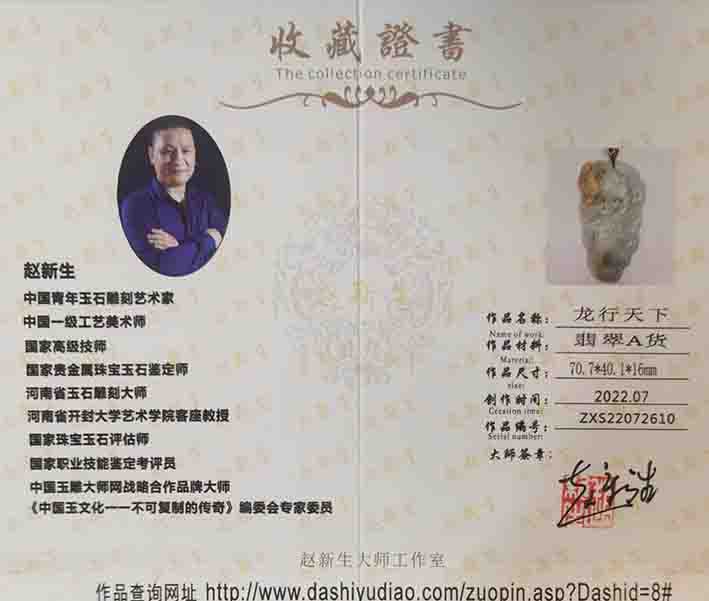 收藏證書
The collection certificate
赵新生
中国青年玉石雕刻艺术家
中国一级工艺美术师
国家高级技师
国家贵金属珠宝玉石鉴定师
河南省玉石雕刻大师
河南省开封大学艺术学院客座教授
国家珠宝玉石评估师
国家职业技能鉴定考评员
中国玉雕大师网战略合作品牌大师
《中国玉文化一一不可复制的传奇》编委会专家委员
作品名称: 龙行天下
Name of work:
作品材料: 翡翠A货
Material:
作品尺寸: 70.7*40.1*16mm
size:
创作时间: 2022.07
Creation time:
作品编号: ZXS22072610
Serial number:
大师签章:
赵新生大师工作室
作品查询网址 http://www.dashiyudiao.com/zuopin.asp?Dashid=8#